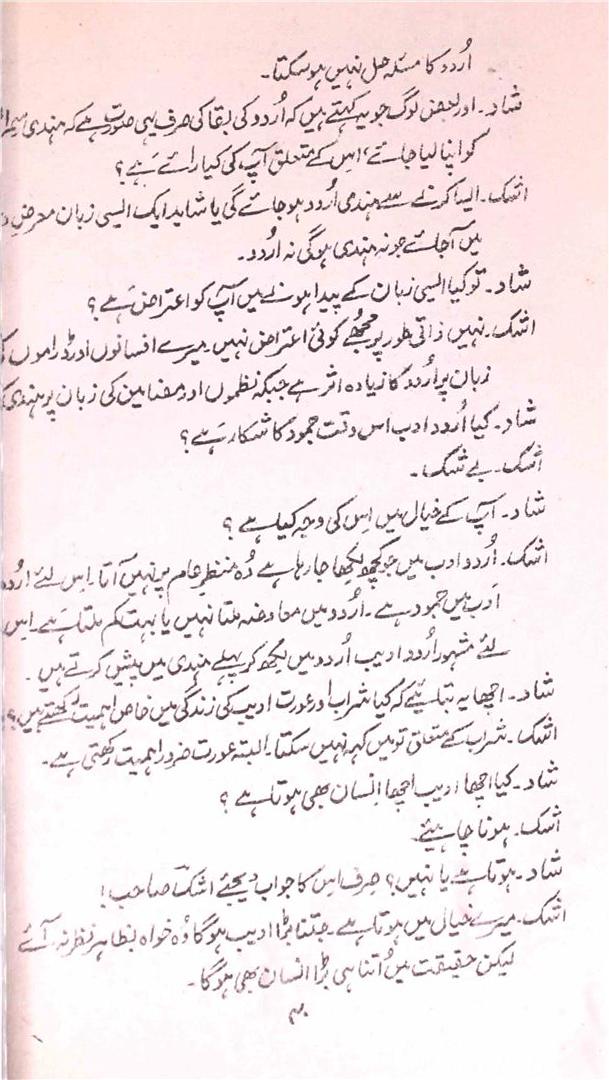 اُردو کا مسئلہ حل نہیں ہوسکتا۔
شاد۔ اور بعض لوگ جو یہ کہتے ہیں کہ اُردو کی بقا کی صرف یہی صورت ہے کہ ہندی
کو اپنا لیا جائے، اس کے متعلق آپ کی کیا رائے ہے؟
اشک۔ ایسا کرنے سے ہندی اُردو ہو جائے گی یا شاید ایک ایسی زبان معرضِ
میں آجائے جو نہ ہندی ہوگی نہ اُردو۔
شاد۔ تو کیا ایسی زبان کے پیدا ہونے میں آپ کو اعتراض ہے؟
اشک۔ نہیں ذاتی طور پر مجھے کوئی اعتراض نہیں۔ میرے افسانوں اور ڈراموں
زبان پر اُردو کا زیادہ اثر ہے جبکہ نظموں اور مضامین کی زبان پر ہندی
شاد۔ کیا اُردو ادب اس وقت جمود کا شکار ہے؟
اشک۔ بے شک۔
شاد۔ آپ کے خیال میں اِس کی وجہ کیا ہے؟
اشک۔ اُردو ادب میں جو کچھ لکھا جا رہا ہے وُہ منظرِ عام پر نہیں آتا۔ اِس لئے اردو
ادب میں جمود ہے۔ اُردو میں معاوضہ ملتا نہیں یا بہت کم ملتا ہے۔ اِس
لئے مشہور اُردو ادیب اُردو میں لکھ کر پہلے ہندی میں پیش کرتے ہیں۔
شاد۔ اچھا یہ بتائیے کہ کیا شراب اور عورت ادیب کی زندگی میں خاص اہمیت رکھتے ہیں؟
اشک۔ شراب کے متعلق تو میں کہہ نہیں سکتا۔ البتہ عورت ضرور اہمیت رکھتی ہے۔
شاد۔ کیا اچھا ادیب اچھا انسان بھی ہوتا ہے؟
اشک۔ ہونا چاہیئے۔
شاد۔ ہوتا ہے یا نہیں؟ صِرف اِس کا جواب دیجئے اشکؔ صاحب!
اشک۔ میرے خیال میں ہوتا ہے۔ جتنا بڑا ادیب ہوگا وُہ خواہ بظاہر نظر نہ آئے
لیکن حقیقت میں اُتنا ہی بڑا انسان بھی ہوگا۔